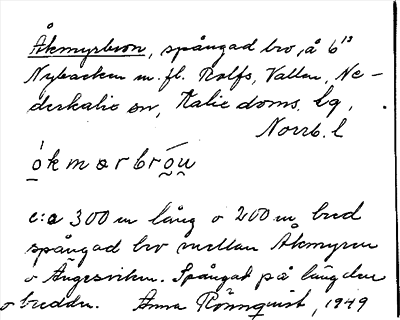 Åkmyrbron, spångad bro, å 6¹³
Nybacken m. fl. Rolfs, Vallen, Ne-
derkalix sn, Kalix doms. lg,
Norrb. l
ókmarbróu
c:a 300 m lång o 200 m bred
spångad bro mellan Åkmyren
o Ängesviken. Spångat på längden
o bredden. Anna Rönnquist, 1949